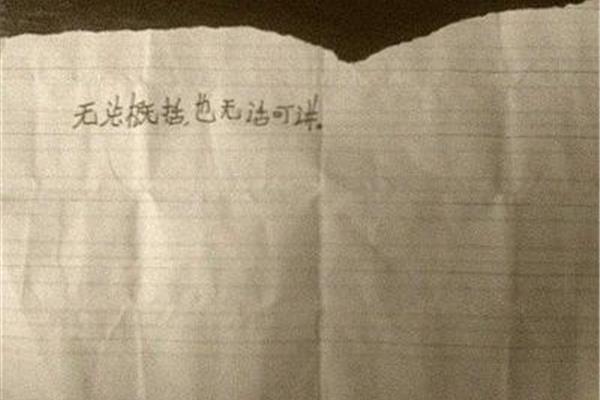 无法概括,也无话可讲。